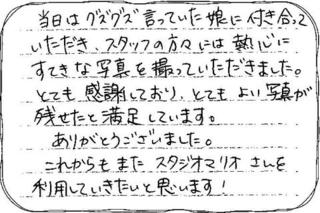 当日はグズグズ言っていた娘に付き合って
いただき、スタッフの方々には熱心に
すてきな写真を撮っていただきました。
とても感謝しており、とてもよい写真が
残せたと満足しています。
ありがとうございました。
これからもまたスタジオマリオさんを
利用していきたいと思います!